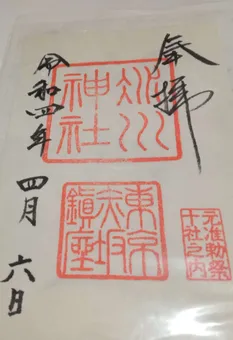 奉拝
元准勅祭
十社之内
氷川
神社
東京
赤坂
鎮座
令和四年
四月六日